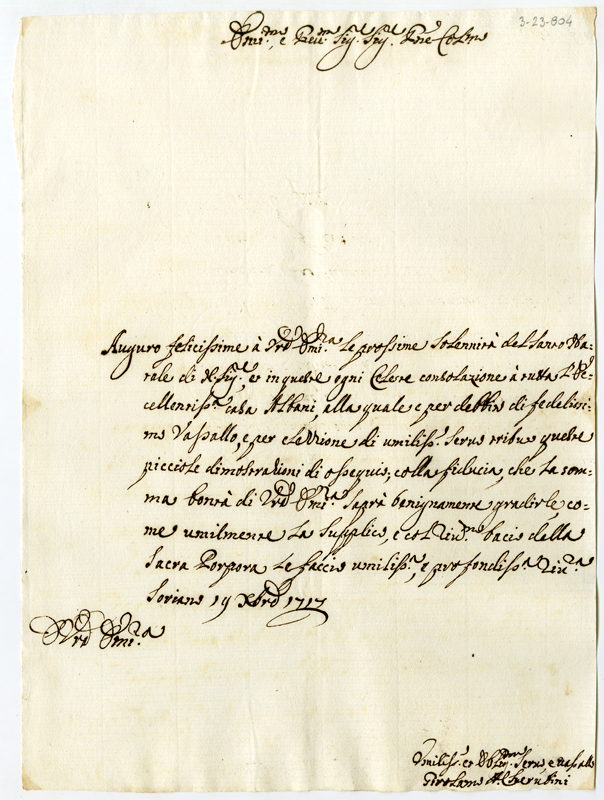 3-23-804
Emin.mo, e Reu.mo Sig.r Sig.r P.ne Col.mo
Auguro felicissime à V'rã Em.za le prossime solennità del Santo Na=
tale di N. Sig.re, et in quelle ogni Celeste consolazione à tutta l'Ec=
cellentiss.ma Casa Albani, alla quale e per debito di fedelissi=
mo Vassallo, e per elezzione di umiliss.o Seruo tributo queste
picciole dimostrazioni di ossequio, colla fiducia, che la som=
ma bontà di V'rã Em.za saprà benignamente gradirle, co=
me umilmente La supplico, e col riu.mo bacio della
Sacra Porpora Le faccio umiliss.a, e profondiss.a riu.za
Soriano 19 Xbrẽ 1717
D V'rã Em.za
Vmiliss.o et Obblig.mo Seruo e uassallo
Girolamo Cherubini